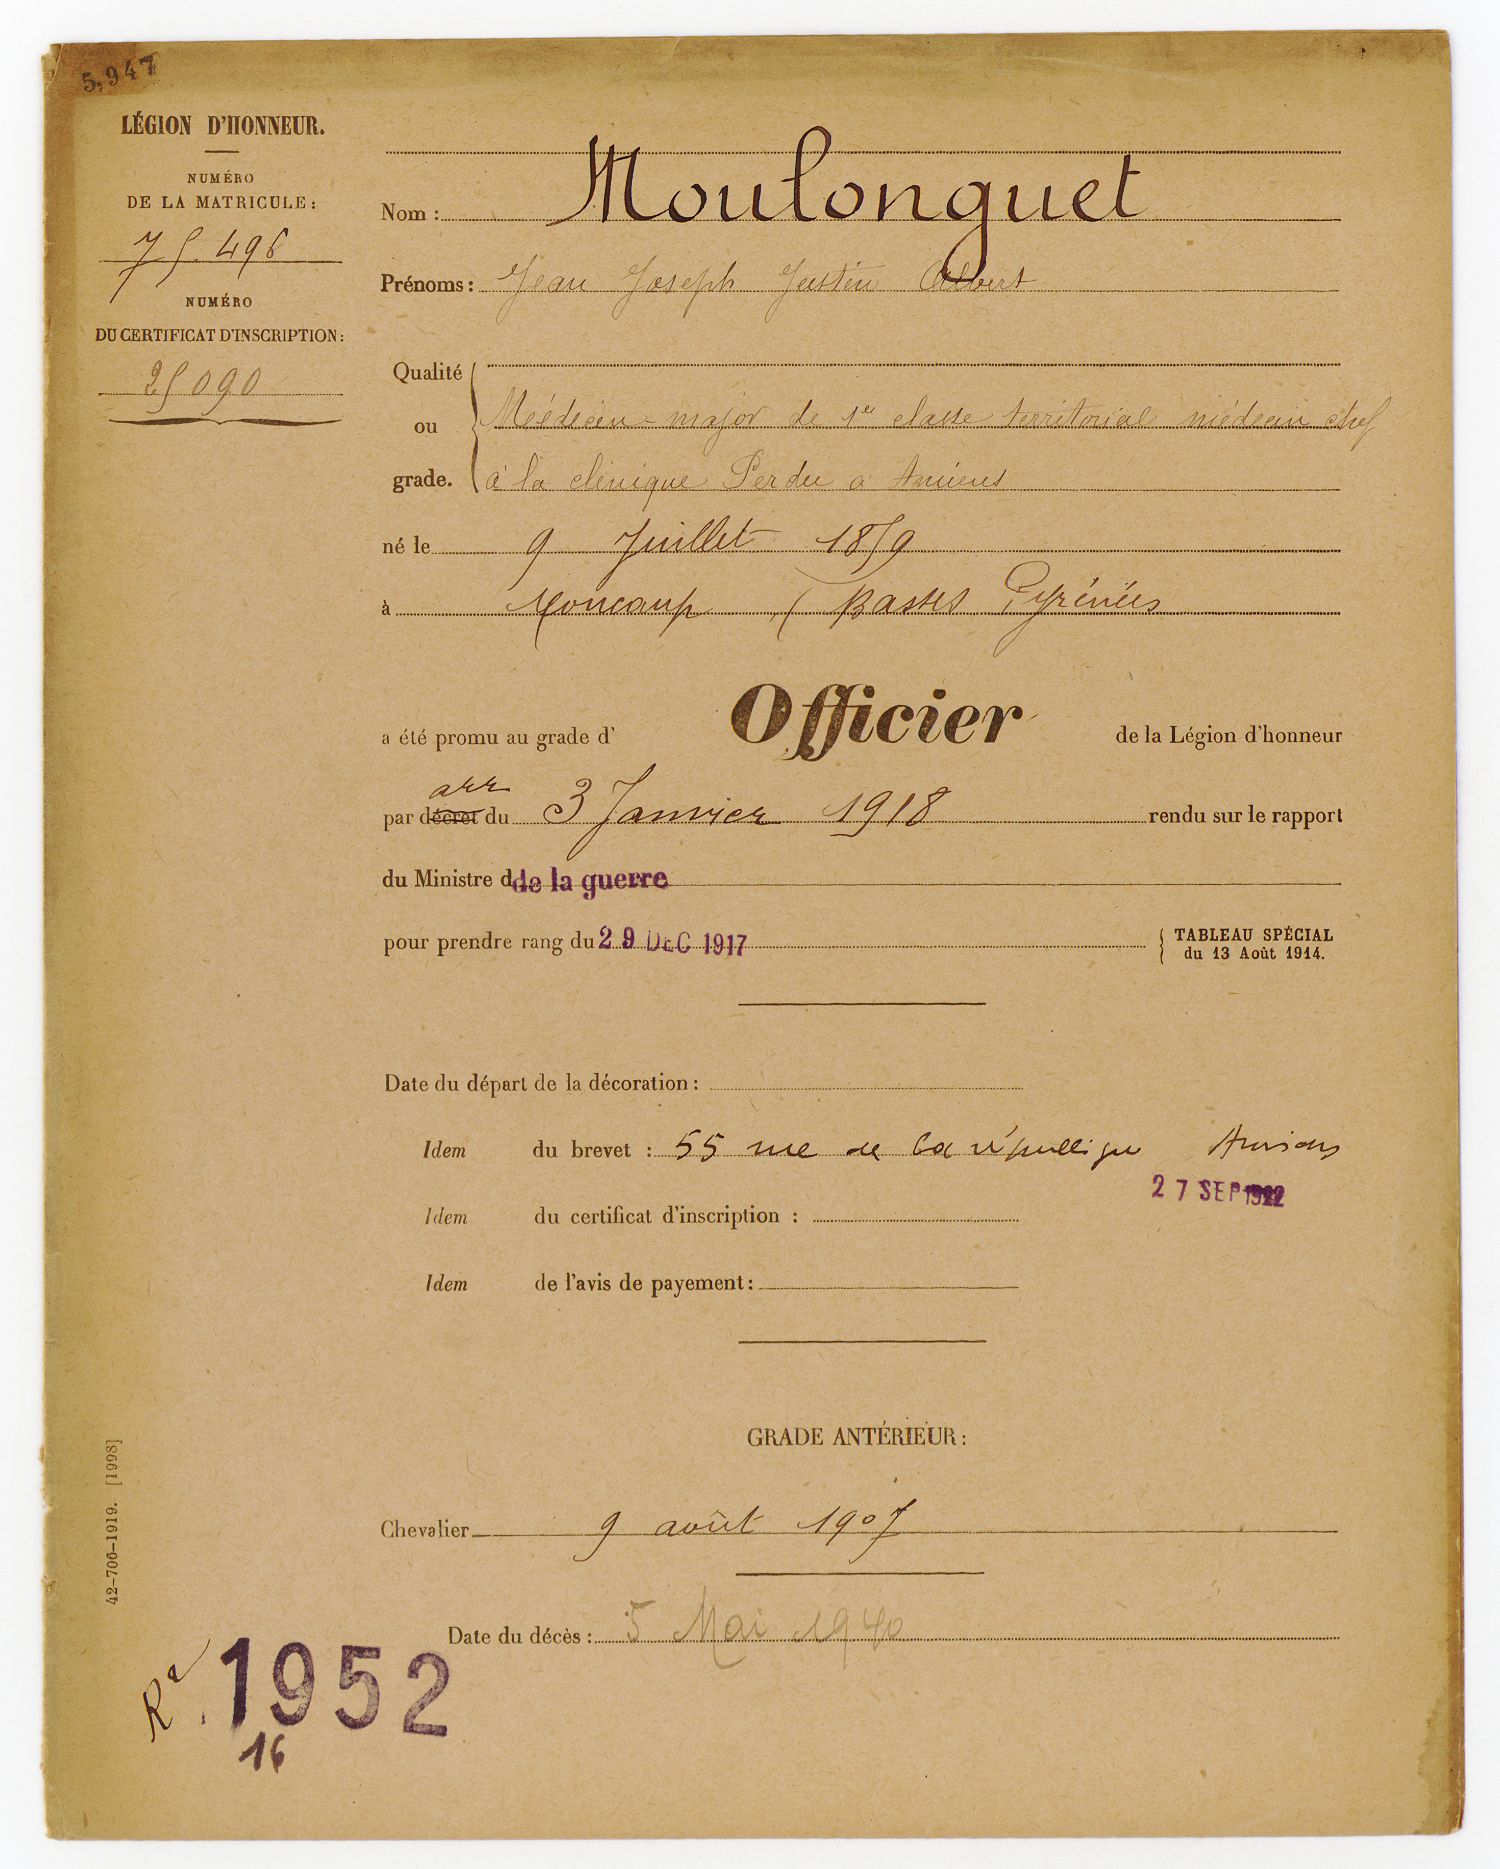 5,947
LÉGION D'HONNEUR.
NUMÉRO
DE LA MATRICULE :
75.496
NUMÉRO
DU CERTIFICAT D'INSCRIPTION :
25090
Nom : Moulonguet
Prénoms : Jean Joseph Justin Albert
Qualité
ou
grade.
Médecin-major de 1re classe territorial médecin chef
à la clinique Perdu à Amiens
né le 9 Juillet 1859
à Moncaup (Basses Pyrénées
a été promu au grade d' Officier de la Légion d'honneur
arr
par décret du 3 Janvier 1918 rendu sur le rapport
du Ministre d de la guerre
pour prendre rang du 29 DEC 1917
TABLEAU SPÉCIAL
du 13 Août 1914.
Date du départ de la décoration :
Idem du brevet : 55 rue de la république Amiens
27 SEP 1922
Idem du certificat d'inscription :
Idem de l'avis de payement :
GRADE ANTÉRIEUR :
Chevalier 9 août 1907
Date du décès : 5 Mai 1940
42-706-1919. [1998]
Rr 1952
16